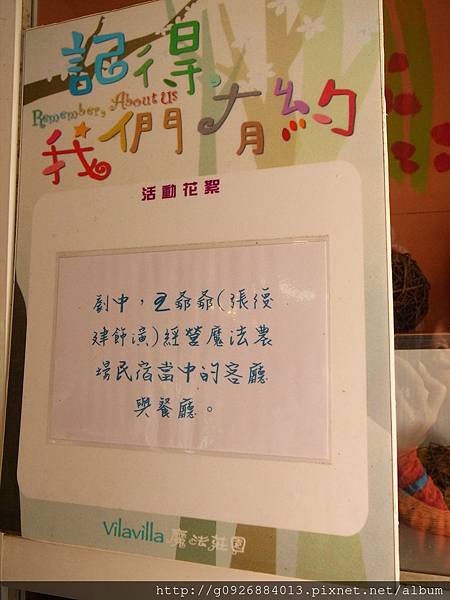 記得,
Remember, About us
我們有約
活動花絮
劇中，王爺爺(張復
建飾演)經營魔法農
場民宿當中的客廳
與餐廳。
Vilavilla 魔法莊園
http://g0926884013.pixnet.net/album